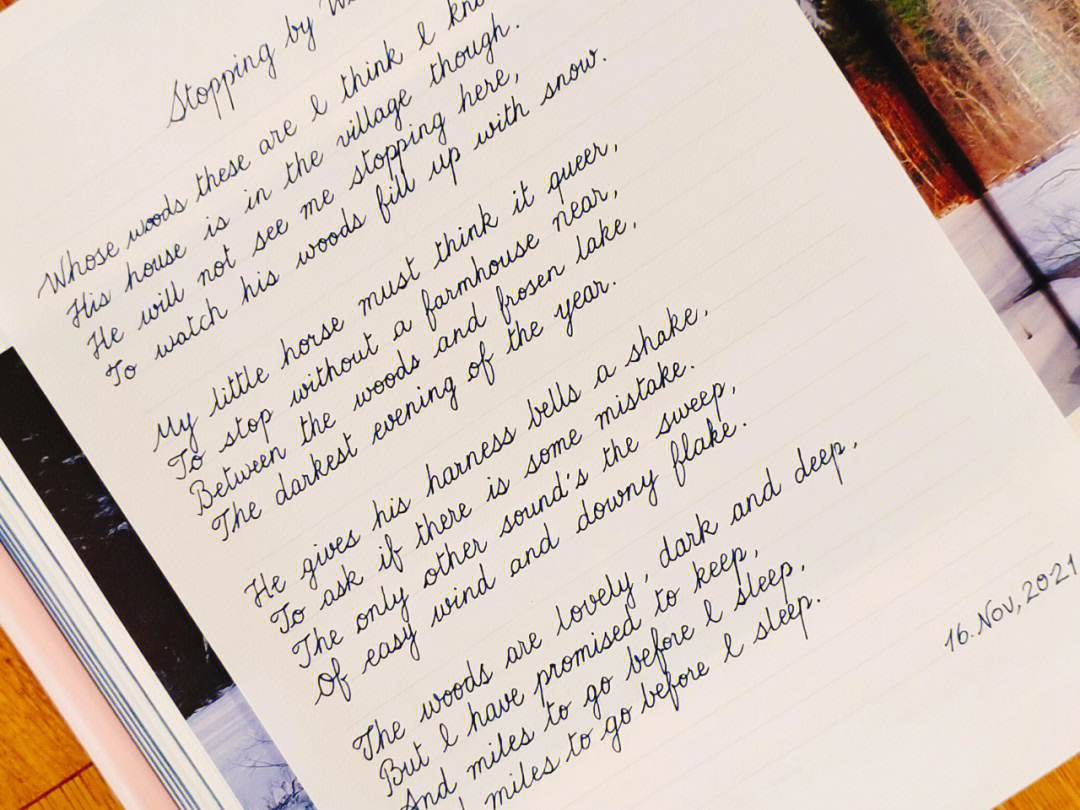 Stopping by
Whose woods these are I think I kno
His house is in the village though.
He will not see me stopping here,
To watch his woods fill up with snow.
My little horse must think it queer,
To stop without a farmhouse near,
Between the woods and frosen lake,
The darkest evening of the year.
He gives his harness bells a shake,
To ask if there is some mistake.
The only other sound's the sweep,
Of easy wind and downy flake.
The woods are lovely, dark and deep,
But I have promised to keep,
And miles to go before I sleep,
miles to go before I sleep.
16. Nov, 2021